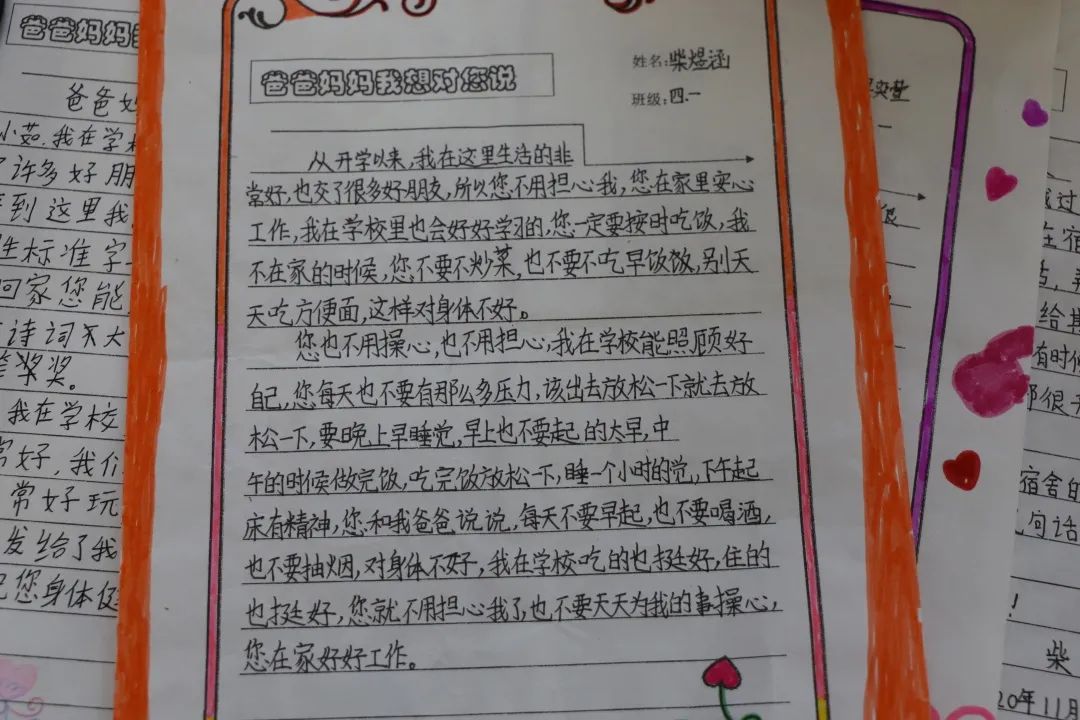 爸爸妈妈
爸爸
小茹,我在学
许多好朋
到这里我
标准字
回家您能
诗词大
奖。
我在学校
常好,我们
常好玩
发给了我
您身体
爸爸妈妈我想对您说
姓名:柴煜涵
班级:四.一
从开学以来,我在这里生活的非
常好,也交了很多好朋友,所以您不用担心我,您在家里安心
工作,我在学校里也会好好学习的,您一定要按时吃饭,我
不在家的时候,您不要不炒菜,也不要不吃早饭饭,别天
天吃方便面,这样对身体不好。
您也不用操心,也不用担心,我在学校能照顾好
自己,您每天也不要有那么多压力,该出去放松一下就去放
松一下,要晚上早睡觉,早上也不要起的太早,中
午的时候做完饭,吃完饭放松一下,睡一个小时的觉,下午起
床有精神,您和我爸爸说说,每天不要早起,也不要喝酒,
也不要抽烟,对身体不好,我在学校吃的也挺好,住的
也挺好,您就不用担心我了,也不要天天为我的事操心,
您在家好好工作。
过
在宿
给其
有时候
那很
宿舍的
句话
!
柴
20年11月